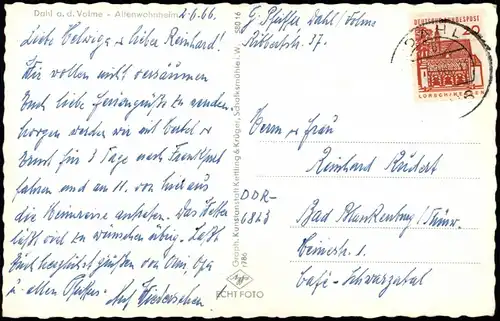 Dahl a. d. Volme - Altenwohnheim
2.6.66
Liebe Helwiga u lieber Reinhard!
Wir wollen nicht versäumen
Euch liebe Feriengrüße zu senden.
Morgen werden wir mit Bertel u
Ernst für 3 Tage nach Frankfurt
fahren und am 11. von hier aus
die Heimreise antreten. Das Wetter
läßt viel zu wünschen übrig. Laßt
Euch herzlichst grüßen von Omi Opa
u allen Auf Wiedersehen.
Graph. Kunstanstalt Kettling & Krüger, Schalksmühle i. W. SB 216
786
Agfa
ECHT FOTO
G. Pfeiffer Dahl/Volme
Ribbertstr. 37.
DEUTSCHE BUNDESPOST
LORSCH/HESSEN
DAHL
Herrn u Frau
Reinhard Rudert
DDR-
6823
Bad Blankenburg/Thür.
Heinestr. 1.
Café-Schwarzatal